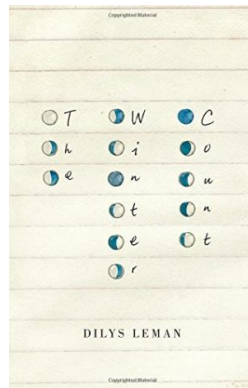 Copyrighted Material
T W C
h i o
e n u
t n
e t
r
DILYS LEMAN
Copyrighted Material